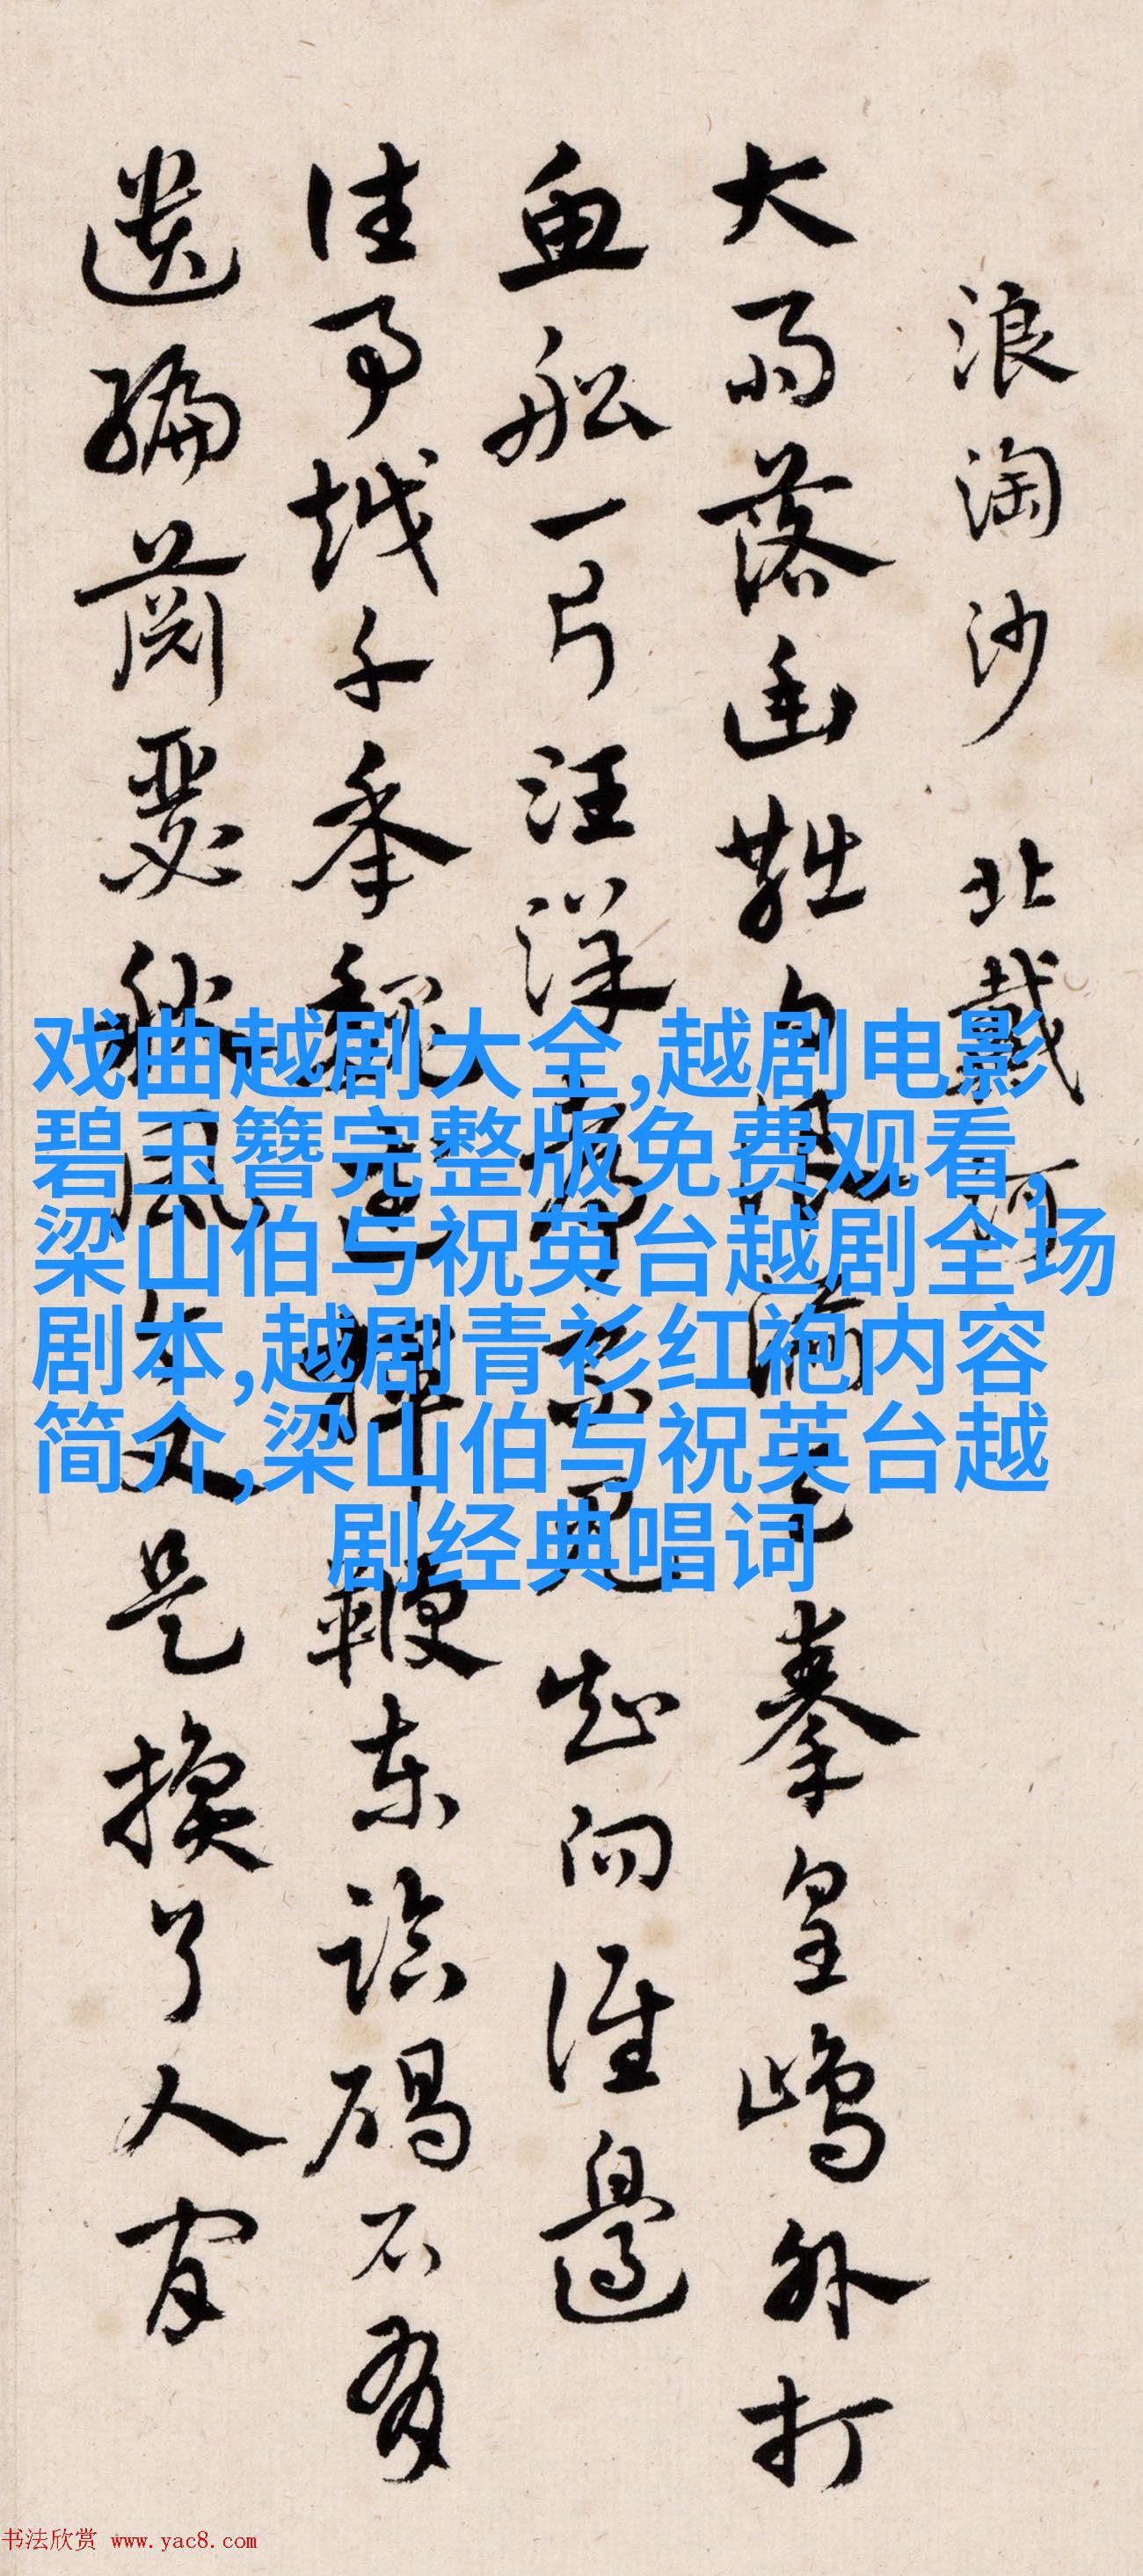 浪淘沙 北戴河
大雨落幽燕白浪滔天 秦皇島外打
魚船一片汪洋都不見 知向誰邊
往事越千年魏武揮鞭東臨碣石有
遺編蕭瑟秋風今又是換了人間
戏曲越剧大全,越剧电影
碧玉簪完整版免费观看,
梁山伯与祝英台越剧全场
剧本,越剧青衫红袍内容
简介,梁山伯与祝英台越
剧经典唱词
书法欣赏 www.yac8.com